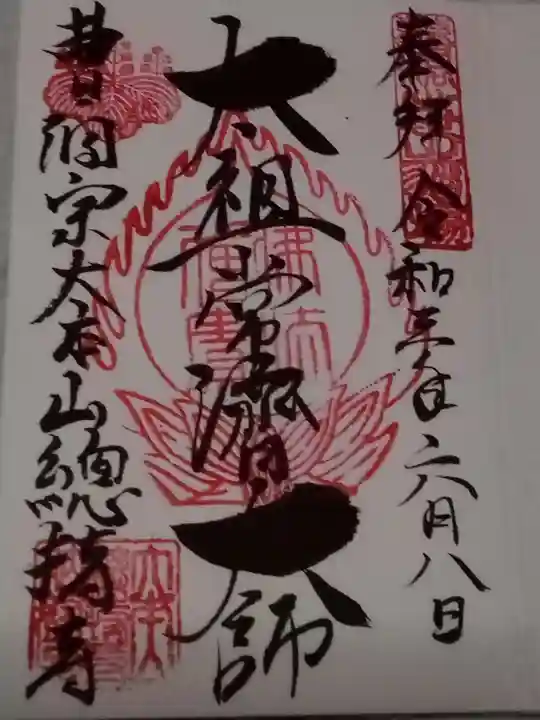 奉拝 令和三年六月八日
太祖常濟大師
曹洞宗大本山總持寺